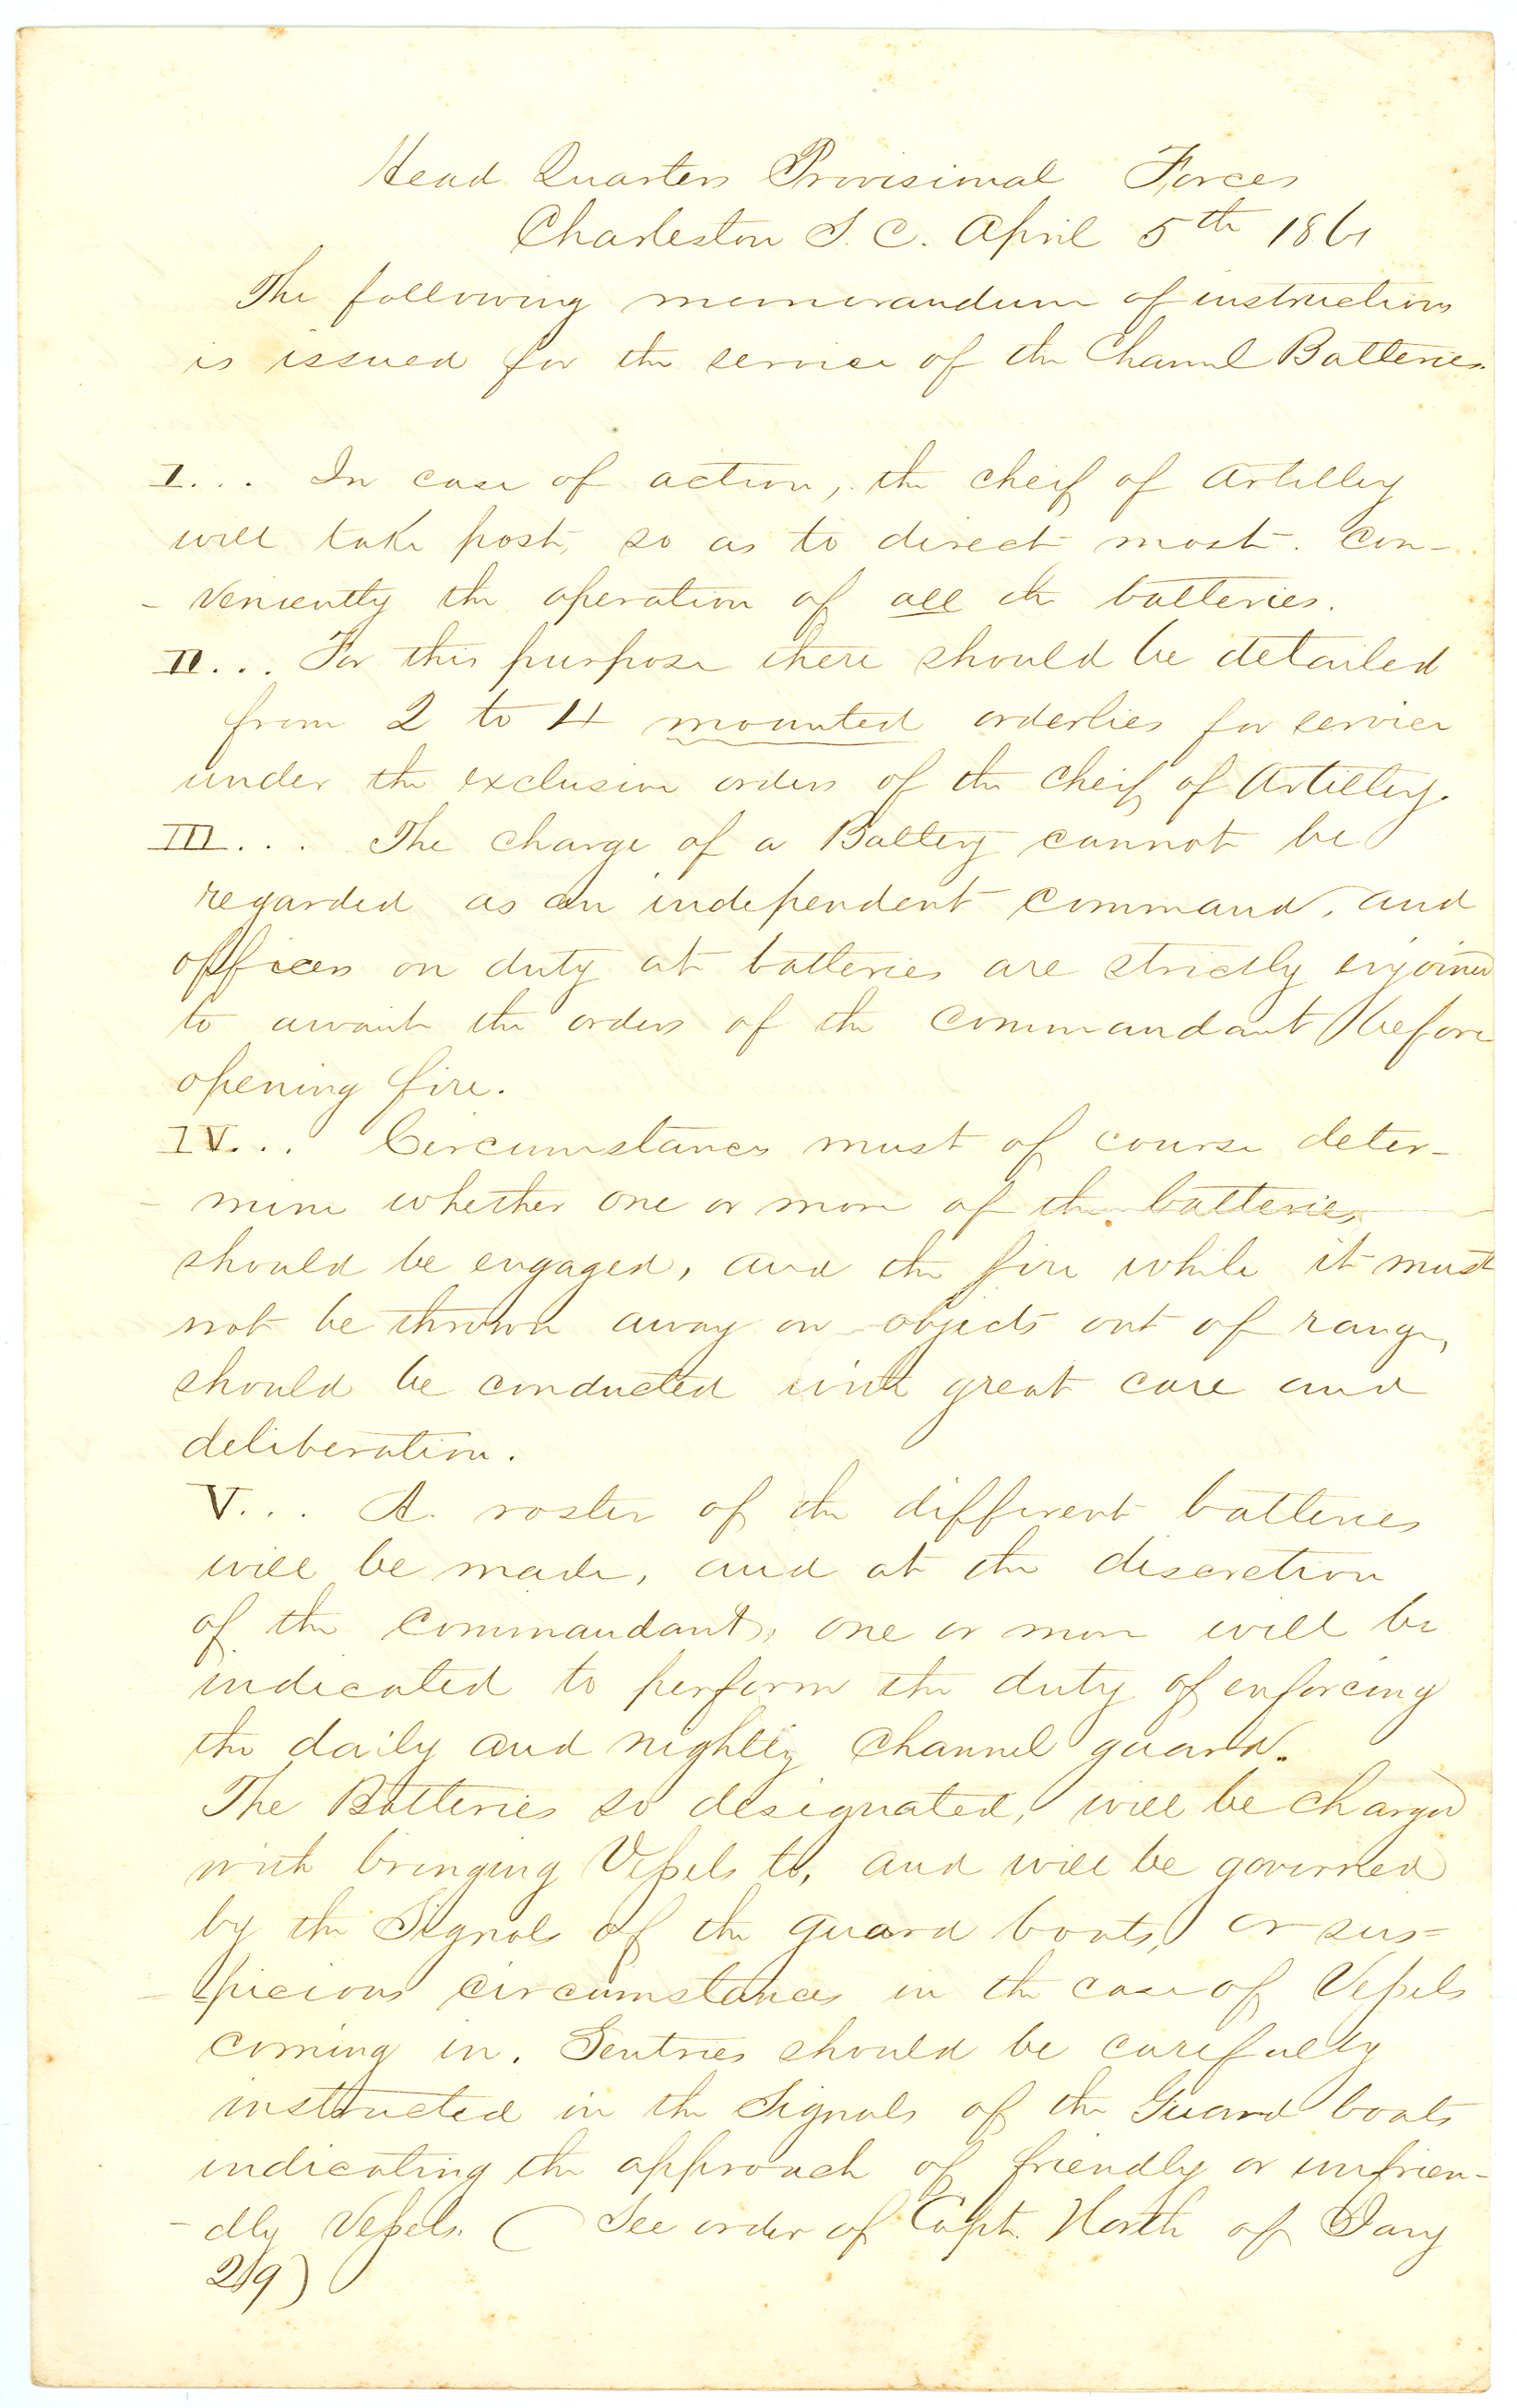 Head Quarters Provisional Forces
Charleston S. C. April 5th 1861
The following memorandum of instructions
is issued for the service of the Channel Batteries.
I... In case of action, the cheif of Artillery
will take post, so as to direct most con-
- veniently the operation of all the batteries.
II... For this purpose there should be detailed
from 2 to 4 mounted orderlies for service
under the exclusive orders of the Cheif of Artillery.
III... The charge of a Battery cannot be
regarded as an independent command, and
officers on duty at batteries are strictly enjoined
to await the orders of the Commandant before
opening fire.
IV... Circumstances must of course deter-
- mine whether one or more of the batteries
should be engaged, and the fire while it must
not be thrown away on objects out of range,
should be conducted with great care and
deliberation.
V... A roster of the different batteries
will be made, and at the discretion
of the Commandant, one or more will be
indicated to perform the duty of enforcing
the daily and nightly Channel guard.
The Batteries so designated, will be charged
with bringing Vessels to, and will be governed
by the Signals of the guard boats, or sus=
- picious circumstances in the case of Vessels
coming in. Sentries should be carefully
instructed in the Signals of the Guard boats
indicating the approach of friendly or unfrien-
- dly Vessels. (See order of Capt. North of Jany
29)